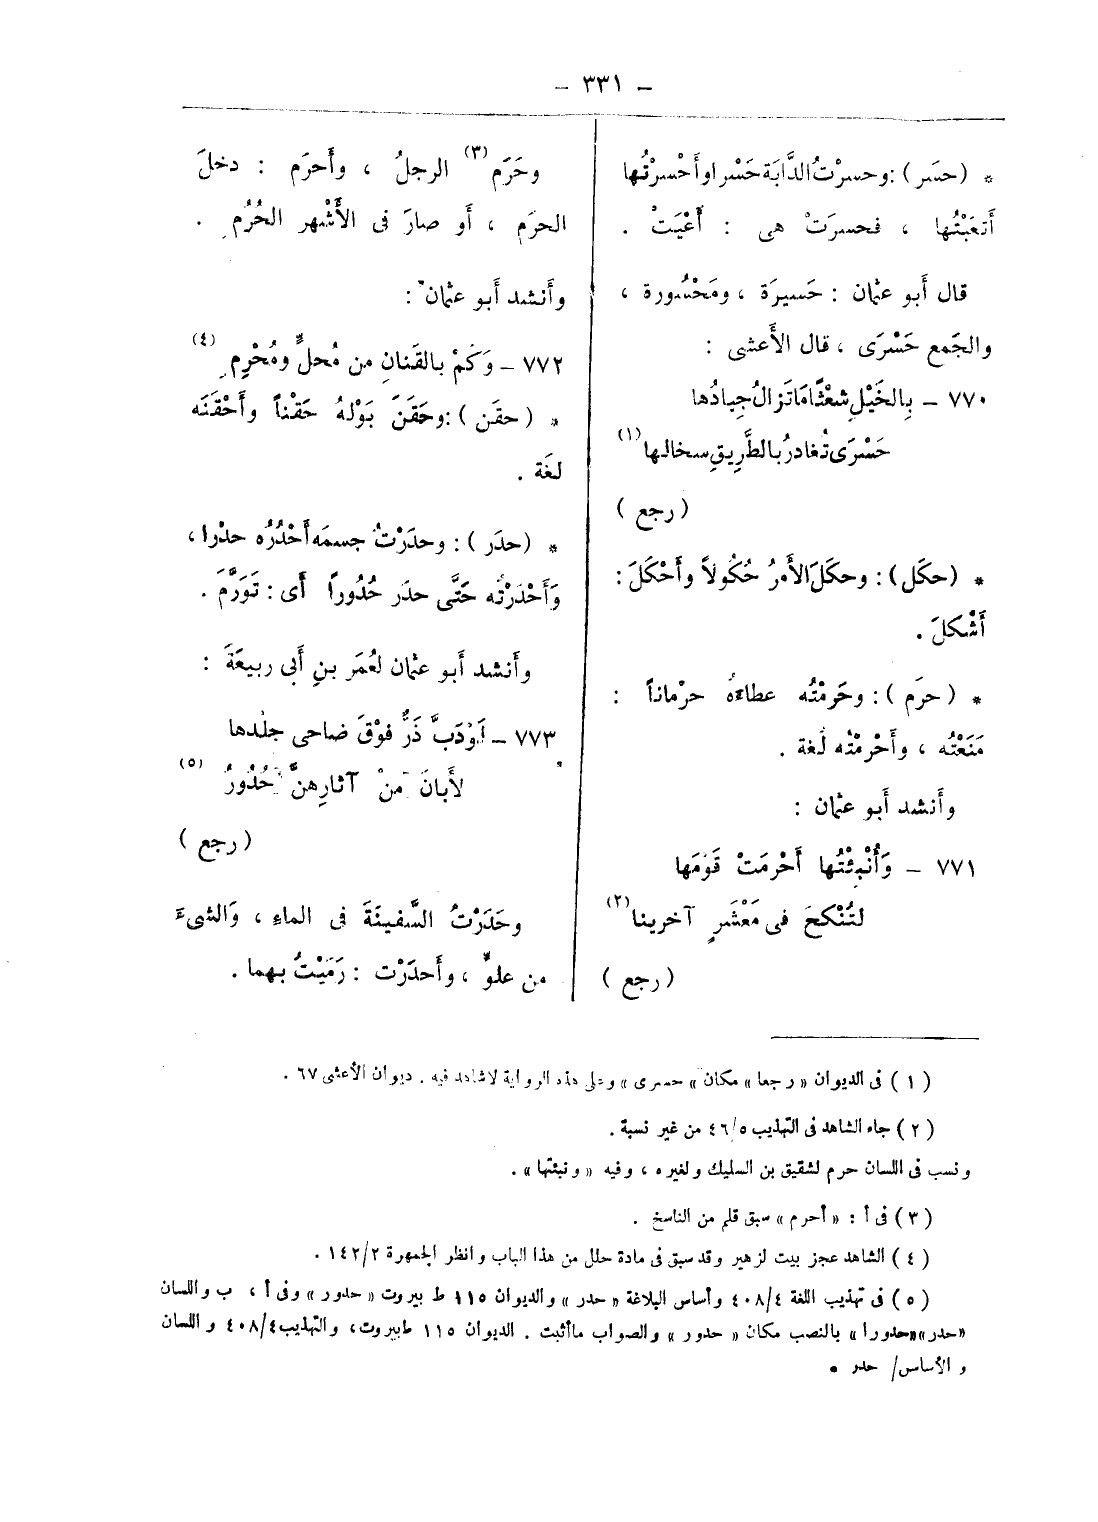 – ٣٣١ –
* (حسَر) : وحسرْتُ الدَّابَة حَسْرا وأَحْسرْتُها
أَتعَبْتُها ، فحسرَتْ هى : أَعْيَتْ .
قال أَبو عثمان : حَسيرَة ، ومَحْسُورة ،
والجَمع حَسْرَى ، قال الأَعشى :
٧٧٠ – بِالخَيْلِ شعْثًا مَا تَزالُ جِيادُها
حَسْرَى تُغادرُ بالطَّرِيقِ سخالها (١)
( رجع )
* (حكَل) : وحكَلَ الأَمرُ حُكُولاً وأَحْكَلَ :
أَشْكلَ .
* (حرَم) : وحَرَمْتُه عطاءهُ حرْماناً :
مَنَعْتُه ، وأَحْرمْتُه لُغة .
وأَنشد أَبو عثمان :
٧٧١ – وَأُنْبِئْتُها أَحْرمَتْ قَوْمَها
لتُنْكحَ فى مَعْشَرٍ آخرينا (٢)
( رجع )
وحَرَم (٣) الرجلُ ، وأَحرَم : دخلَ
الحرَم ، أَو صارَ فى الأَشْهر الحُرُمِ .
وأَنشد أَبو عثمان :
٧٧٢ – وَكَمْ بالقَنانِ من مُحلٍّ ومُحْرِمِ (٤)
* (حقَن) : وحَقَنَ بَوْلهُ حَقْناً وأَحْقَنَه
لغَة .
* (حدَر) : وحدَرْتُ جسمَه أَحْدُرُه حدْرا ،
وَأَحْدَرْتُه حَتَّى حدَر حُدُوراً أَى : تَوَرَّمَ .
وأَنشد أَبو عثمان لعُمَر بنِ أَبى ربيعَةَ :
٧٧٣ – لَوْدَبَّ ذَرٌّ فوْقَ ضاحى جلْدها
لأَبانَ منْ آثارِهنَّ حُدُورُ (٥)
( رجع )
وحَدَرْتُ السَّفينَةَ فى الماءِ ، وَالشىءَ
من علوٍّ ، وأَحدَرْت : رَمَيْتُ بهما .
( ١ ) فى الديوان « رجعا » مكان « حسرى » وعلى هذه الرواية لا شاهد فيه . ديوان الأعشى ٦٧ .
( ٢ ) جاء الشاهد فى التهذيب ٤٦/٥ من غير نسبة .
ونسب فى اللسان حرم لشقيق بن السليك ولغيره ، وفيه « ونبئتها » .
( ٣ ) فى أ : « أحرم » سبق قلم من الناسخ .
( ٤ ) الشاهد عجز بيت لزهير وقد سبق فى مادة حلل من هذا الباب وانظر الجمهرة ١٤٢/٢ .
( ٥ ) فى تهذيب اللغة ٤٠٨/٤ وأساس البلاغة « حدر » والديوان ١١٥ ط بيروت « حدور » وفى أ ، ب واللسان
« حدر » « حدورا » بالنصب مكان « حدور » والصواب ما أثبت . الديوان ١١٥ ط بيروت ، والتهذيب ٤٠٨/٤ واللسان
والأساس/ حدر .